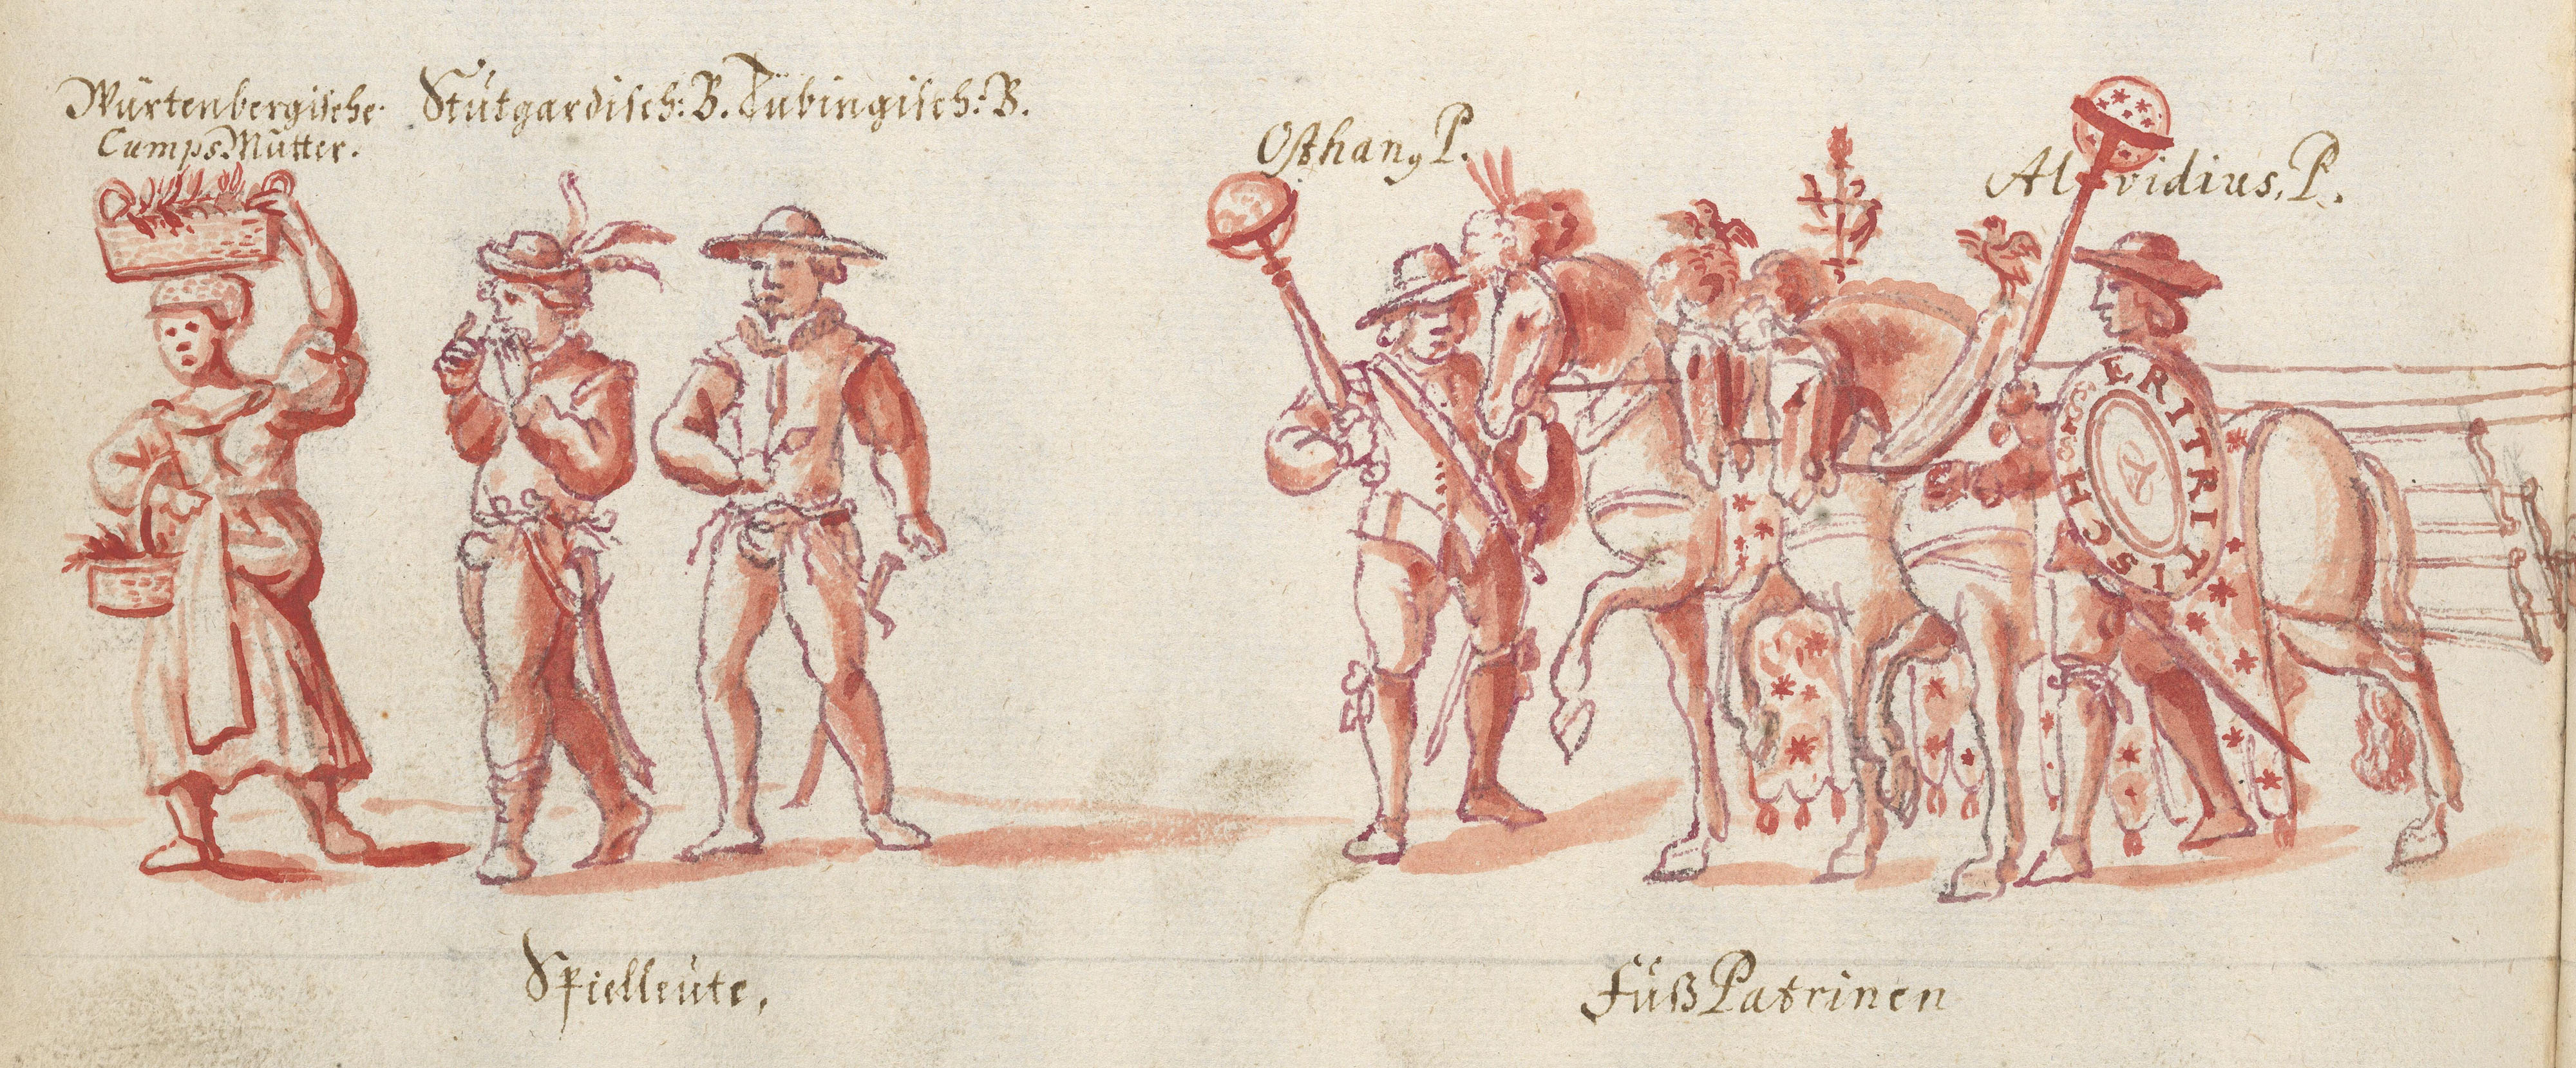 Würtenbergische
CumpsMütter.
Stütgardisch: B. Tübingisch: B.
Osthanꝯ P.
Alvidius, P.
ERITRITISCH
Spielleüte,
FüßPatrinen